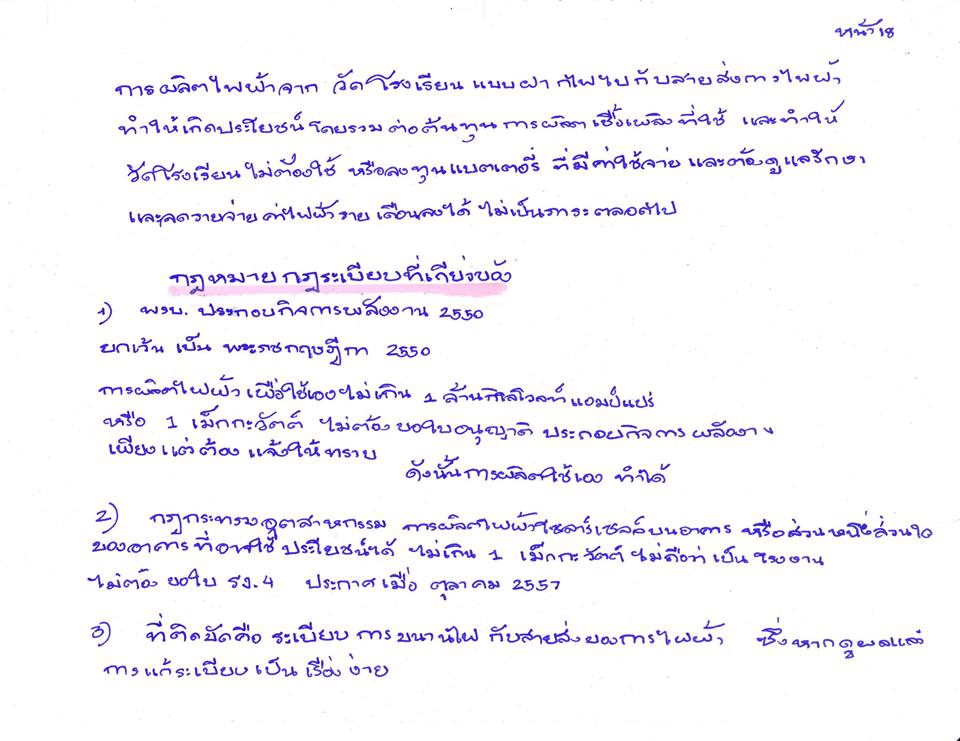 หน้า 18
การผลิตไฟฟ้าจาก วัดโรงเรียน แบบฝากไฟไปกับสายส่งการไฟฟ้า
ทำให้เกิดประโยชน์โดยรวม ต่อต้นทุนการผลิต เชื้อเพลิงที่ใช้ และทำให้
วัดโรงเรียนไม่ต้องใช้ หรือลงทุนแบตเตอรี่ ที่มีค่าใช้จ่าย และต้องดูแลรักษา
และลดรายจ่าย ค่าไฟฟ้าราย เดือนลงได้ ไม่เป็นภาระตลอดไป
กฎหมาย กฎระเบียบที่เกี่ยวข้อง
1) พรบ. ประกอบกิจการพลังงาน 2550
ยกเว้น เป็น พระราชกฤษฎีกา 2550
การผลิตไฟฟ้า เพื่อใช้เองไม่เกิน 1 ล้านกิโลโวลท์แอมป์แปร์
หรือ 1 เม็กกะวัตต์ ไม่ต้อง ขอใบอนุญาติ ประกอบกิจการ พลังงาน
เพียงแต่ต้อง แจ้งให้ทราบ
ดังนั้นการผลิตใช้เอง ทำได้
2) กฎกระทรวงอุตสาหกรรม การผลิตไฟฟ้าโซลาร์เซลล์บนอาคาร หรือส่วนหนึ่งส่วนใด
ของอาคารที่อาจใช้ประโยชน์ได้ ไม่เกิน 1 เม็กกะวัตต์ ไม่ถือว่า เป็น โรงงาน
ไม่ต้อง ขอใบ รง.4 ประกาศเมื่อ ตุลาคม 2557
3) ที่ติดขัดคือ ระเบียบ การขนานไฟ กับสายส่งของการไฟฟ้า ซึ่งหากดูผลแล้ว
การแก้ระเบียบเป็น เรื่อง ง่าย